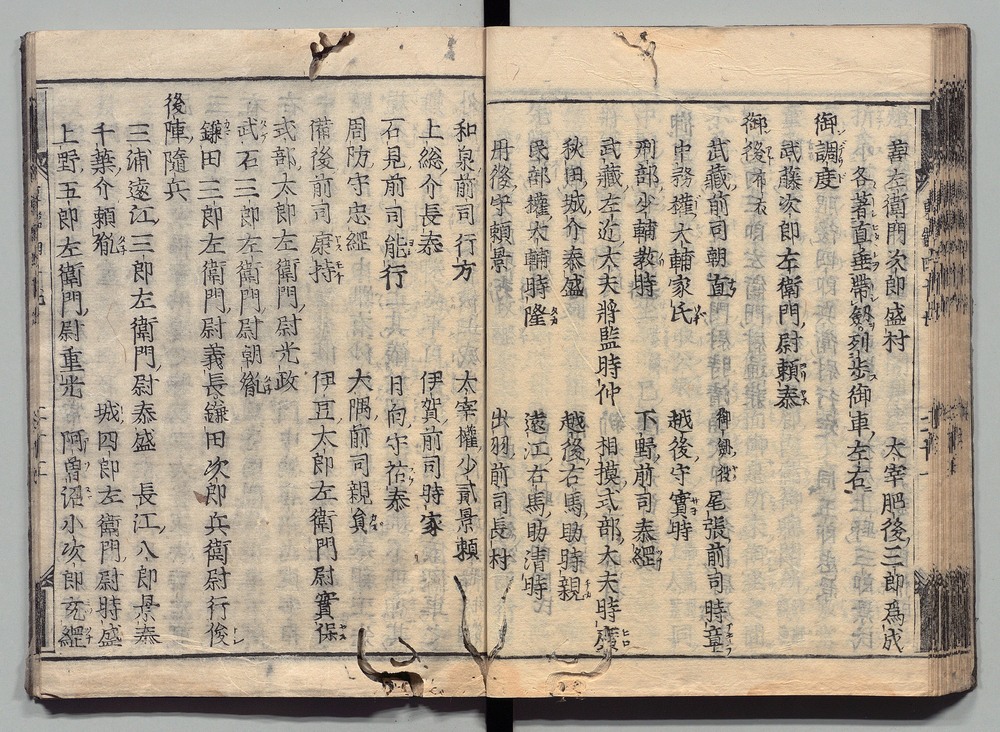 善左衛門次郎盛村　太宰肥後三郎為成
各著直垂帶劔列歩御車左右
御調度
武藤次郎左衛門尉頼泰
御後布衣
武藏前司朝直　御劔役尾張前司時章
中務權大輔家氏　越後守實時
刑部少輔教時　下野前司泰綱
武藏左近大夫將監時仲　相摸式部大夫時廣
秋田城介泰盛　越後右馬助時親
民部權大輔時隆　遠江右馬助清時
丹後守頼景　出羽前司長村
和泉前司行方　太宰權少貳景頼
上総介長泰　伊賀前司時家
石見前司能行　日向守祐泰
周防守忠經　大隅前司親員
備後前司康持　伊豆太郎左衛門尉實保
式部太郎左衛門尉光政
武石三郎左衛門尉朝胤
鎌田三郎左衛門尉義長鎌田次郎兵衛尉行俊
後陣隨兵
三浦遠江三郎左衛門尉泰盛　長江八郎景泰
千葉介頼胤　城四郎左衛門尉時盛
上野五郎左衛門尉重光　阿曽沼小次郎光綱